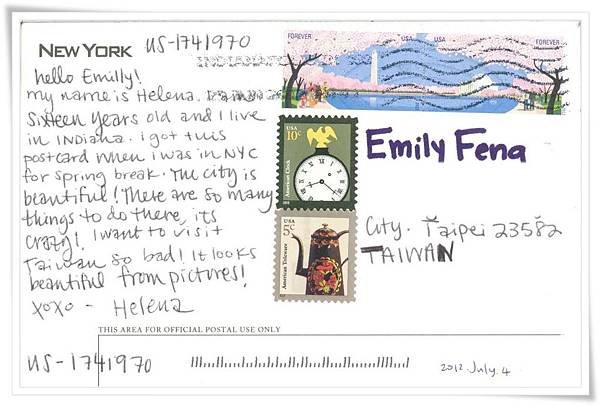 NEW YORK
US-1741970
hello Emilly!
my name is Helena. I am
sixteen years old and I live
in Indiana. I got this
postcard when I was in NYC
for spring break. The city is
beautiful! There are so many
things to do there, its
crazy! I want to visit
Taiwan so bad! It looks
beautiful from pictures!
xoxo - Helena
FOREVER
USA
USA
FOREVER
USA
10c
American Clock
USA
5c
American Toleware
Emily Fena
City. Taipei 23582
TAIWAN
THIS AREA FOR OFFICIAL POSTAL USE ONLY
US-1741970
2012. July. 4